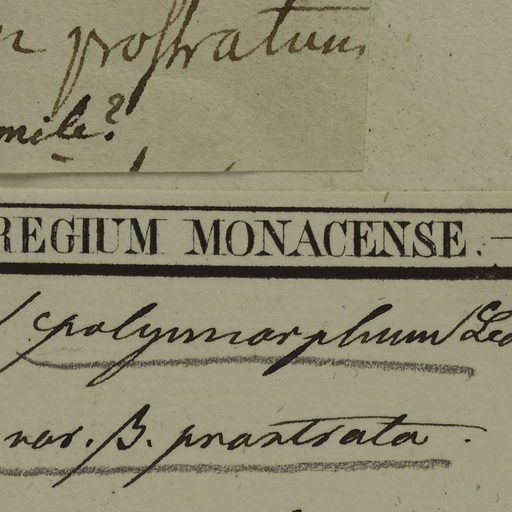 prostratum
mile?
REGIUM MONACENSE.
polymorphum Led
var. β. prostrata.